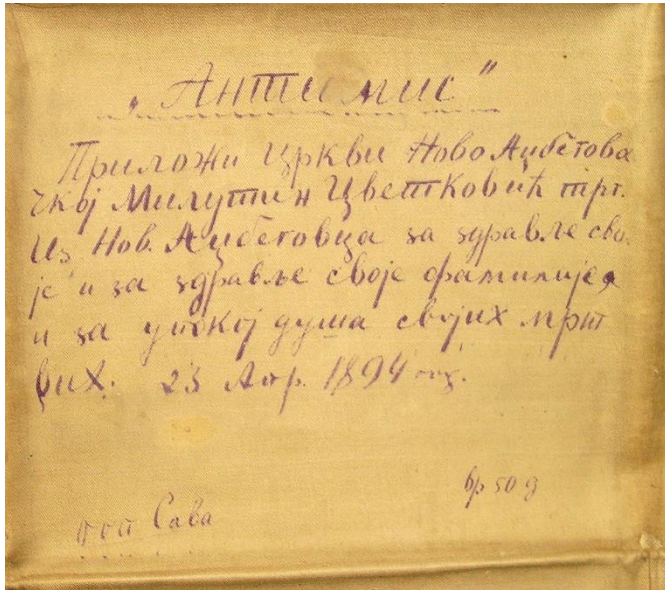 „Антимис"
Приложи Цркви Ново Аџбегова
чкој Милутин Цветковић трг.
Из Нов. Аџбеговца за здравље сво
је и за здравље своје фамилије
и за упокој душа својих мрт
вих. 23 Апр. 1894 год.
вр 50 д
поп Сава